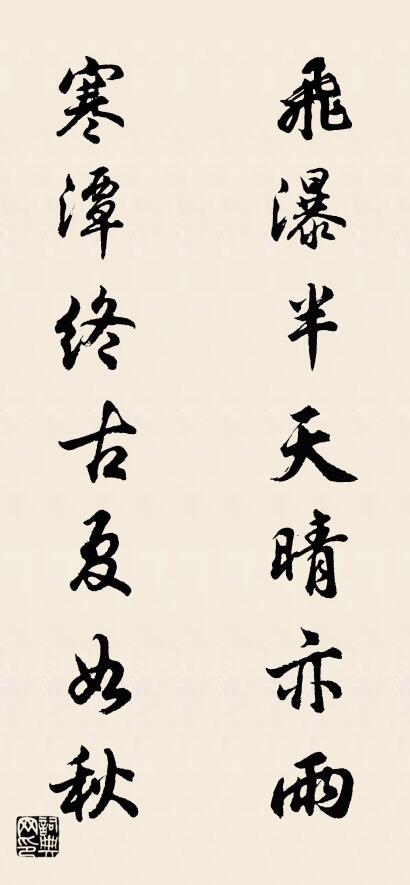 飛瀑半天晴亦雨
寒潭終古夏如秋
詞典网印